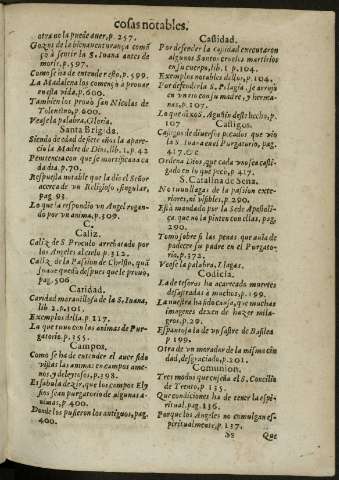 cosas notables.
otra no la puede auer, p. 257.
Gozos de la bienauenturança comẽ
çò à sentir la S. Iuana antes de
morir. p. 597.
Como se ha de entender esto, p. 599.
La Madalena los comẽço a prouar
en esta vida, p. 600.
Tambien los prouò san Nicolas de
Tolentino, p. 600.
Vease la palabra, Gloria.
Santa Brigida.
Siendo de edad de siete años la apare-
cio la Madre de Dios, lib. 1. p. 42
Penitencia con que se mortificaua ca
da dia. p. 70.
Respuesta notable que la dio el Señor
acerca de vn Religioso, singular,
pag. 93.
Lo que la respondio vn Angel rogan-
do por vn anima, p. 309.
C.
Caliz.
Caliz de S. Proculo arrebatado por
los Angeles al cielo. p. 312.
Caliz de la Passion de Christo, quã
suaue queda despues que le prouò,
pag. 506.
Caridad.
Caridad marauillosa de la S. Iuana,
lib. 2. p. 101.
Exemplos della. p. 117.
La que tuuo con las animas de Pur-
gatorio. p. 355.
Campos.
Como se ha de entender el auer sido
vistas las animas en campos ame-
nos, y deleytosos, p. 398.
Es fabula dezir, que los campos Ely
sios sean purgatorio de algunas a-
nimas, p. 400.
Donde los pusieron los antiguos, pag.
400.
Castidad.
Por defender la castidad executaron
algunos Santos crueles martirios
en su cuerpo, lib. 1. p. 104.
Exemplos notables dellos, p. 104.
Por defenderla S. Pelagia, se arrojò
en vn rio con su madre, y herma-
nas, p. 107.
Lo que dixo S. Agustin deste hecho, p.
107
Castigos.
Castigos de diuersos pecados que vio
la S. Iuana en el Purgatorio, pag.
417.
Ordena Dios, que cada vno sea casti-
gado en lo que pecò, p. 417.
S. Catalina de Sena.
No tuuo llagas de la passion exte-
riores, ni visibles, p. 290.
Està mandado por la Sede Apostoli-
ca, que no la pinten con ellas, pag.
290.
Tomò sobre si las penas que auia de
padecer su padre en el Purgato-
rio. p. 372.
Vease la palabra, Llagas.
Codicia.
La de tesoros ha acarreado muertes
desastradas à muchos, p. 199.
La nuestra ha sido causa, que muchas
imagenes dexen de hazer mila-
gros, p. 29.
Espantosa la de vn sastre de Basilea
p. 199.
Otra de vn morador de la misma ciu
dad, desgraciado, p. 201.
Comunion.
Tres modos que enseña el S. Concilio
de Trento, p. 135.
Que condiciones ha de tener la espi-
ritual. pag. 136.
Porque los Angeles no comulgan es-
piritualmente, p. 137.
Ss Que